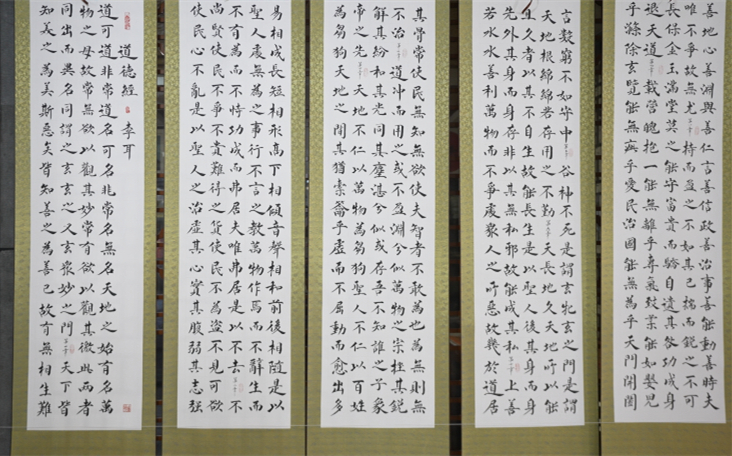 道德經 李耳
道可道非常道名可名非常名無名天地之始有名萬
物之母故常無欲以觀其妙常有欲以觀其徼此兩者
同出而異名同謂之玄玄之又玄衆妙之門 天下皆
知美之為美斯惡矣皆知善之為善已故有無相生難
易相成長短相形高下相傾音聲相和前後相隨是以
聖人處無為之事行不言之教萬物作焉而不辭生而
不有為而不恃功成而弗居夫唯弗居是以不去 不
尚賢使民不爭不貴難得之貨使民不為盜不見可欲
使民心不亂是以聖人之治虛其心實其腹弱其志强
其骨常使民無知無欲使夫智者不敢為也為無則無
不治 道冲而用之或不盈淵兮似萬物之宗挫其銳
解其紛和其光同其塵湛兮似或存吾不知誰之子象
帝之先 天地不仁以萬物為芻狗聖人不仁以百姓
為芻狗天地之間其猶橐籥乎虛而不屈動而愈出多
言數窮不如守中 谷神不死是謂玄牝玄之門是謂
天地根綿綿若存用之不勤 天長地久天地所以能
且久者以其不自生故能長生是以聖人後其身而身
先外其身而身存非以其無私邪故能成其私 上善
若水水善利萬物而不爭處衆人之所惡故幾於道居
善地心善淵與善仁言善信政善治事善能動善時夫
唯不爭故無尤 持而盈之不如其已揣而銳之不可
長保金玉滿堂莫之能守富貴而驕自遺其咎功成身
退天道 載營魄抱一能無離乎專氣致柔能如嬰兒
乎滌除玄覽能無疵乎愛民治國能無為乎天門開闔